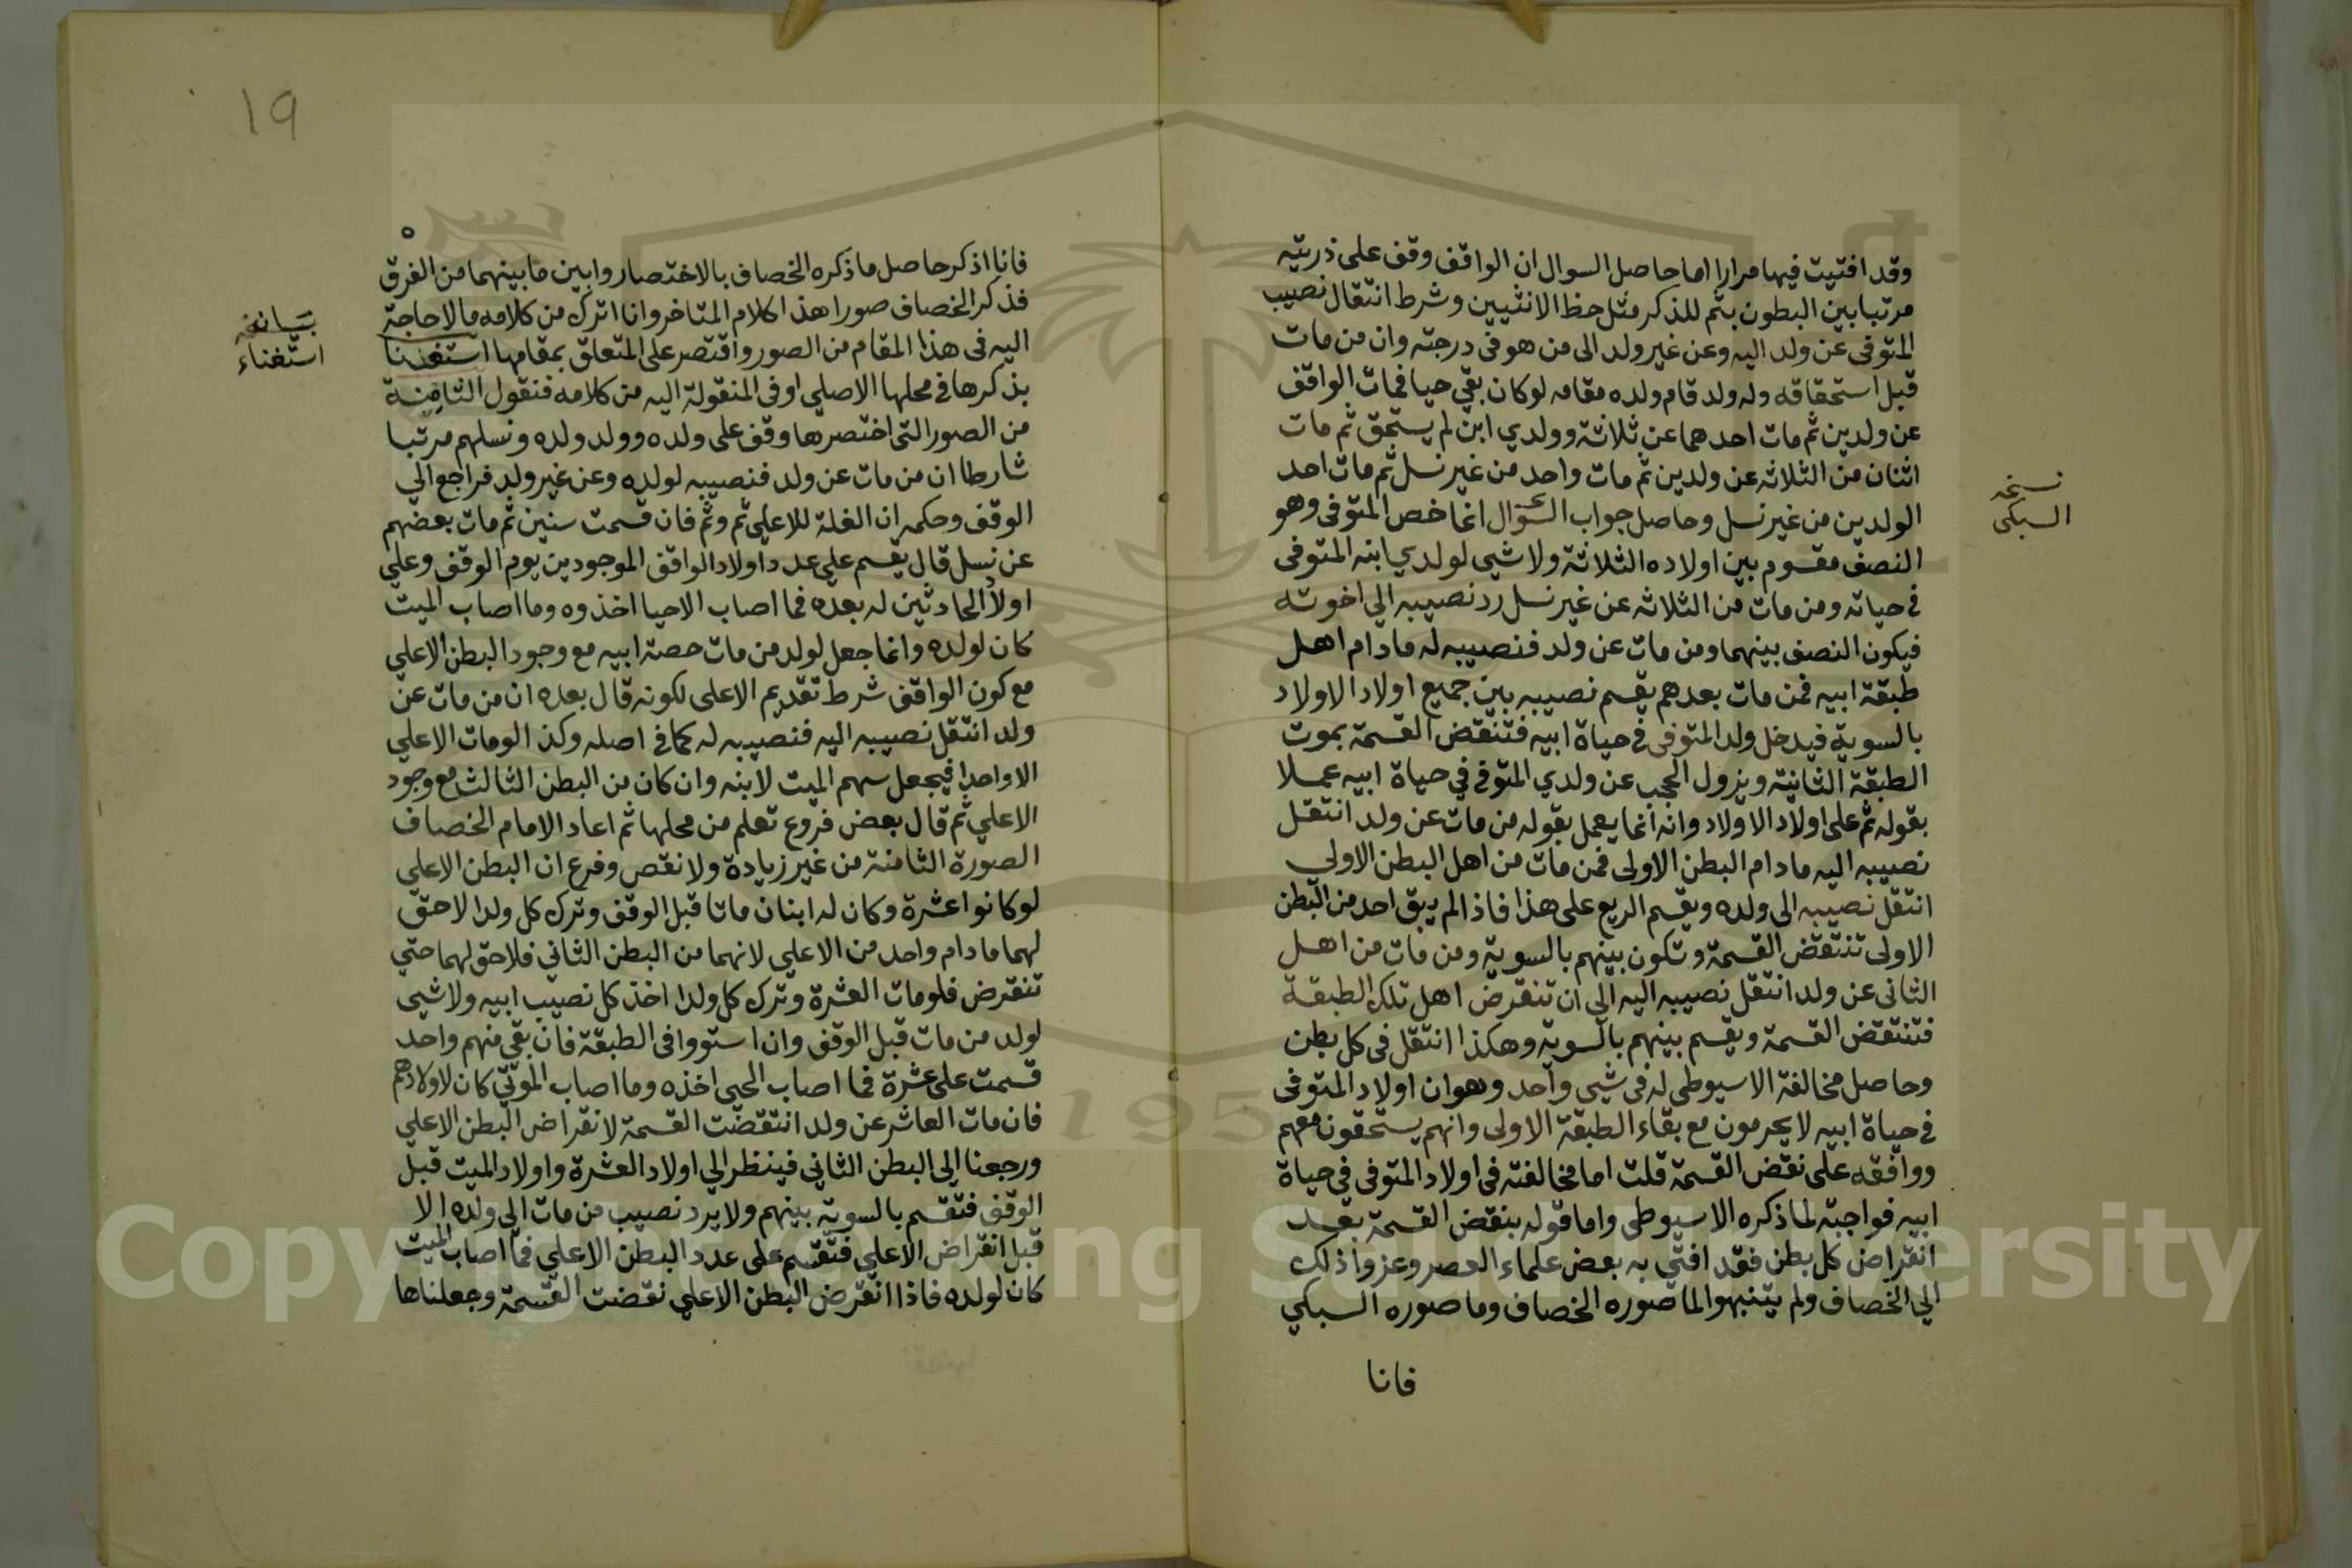 وقد افتيت فيها مرارا اما حاصل السوال ان الواقف وقف على ذريته
مرتبا بين البطون بثم للذكر مثل حظ الانثيين وشرط انتقال نصيب
المتوفى عن ولد اليه وعن غير ولد الى من هو فى درجته وان من مات
قبل استحقاقه وله ولد قام ولده مقامه لو كان بقي حيا فمات الواقف
عن ولدين ثم مات احدهما عن ثلاثة وولدي ابن لم يستحق ثم مات
اثنان من الثلاثه عن ولدين ثم مات واحد من غير نسل ثم مات احد
الولدين من غير نسل وحاصل جواب السؤال انما خص المتوفى وهو
النصف مقسوم بين اولاده الثلاثة ولا شيى لولدي ابنه المتوفى
في حياته ومن مات من الثلاثه عن غير نسل رد نصيبه الي اخوته
فيكون النصف بينهما ومن مات عن ولد فنصيبه له ما دام اهل
طبقة ابيه فمن مات بعدهم يقسم نصيبه بين جميع اولاد الاولاد
بالسوية فيدخل ولد المتوفى في حياة ابيه فتنقض القسمة بموت
الطبقة الثانية ويزول الحجب عن ولدي المتوفي في حياة ابيه عملا
بقوله ثم على اولاد الاولاد وانه انما يعمل بقوله من مات عن ولد انتقل
نصيبه اليه ما دام البطن الاولى فمن مات من اهل البطن الاولي
انتقل نصيبه الى ولده ويقسم الريع على هذا فاذا لم يبق احد من البطن
الاولى تنتقض القسمة وتكون بينهم بالسوية ومن مات من اهل
الثانى عن ولد انتقل نصيبه اليه الي ان تنقرض اهل تلك الطبقة
فتنتقض القسمة ويقسم بينهم بالسوية وهكذا انتقل فى كل بطن
وحاصل مخالفة الاسيوطى له فى شيى واحد وهو ان اولاد المتوفى
في حياة ابيه لا يحرمون مع بقاء الطبقة الاولى وانهم يستحقون معهم
ووافقه على نقض القسمة قلت اما مخالفته فى اولاد المتوفى في حياة
ابيه فواجبة لما ذكره الاسيوطى واما قوله بنقض القسمة بعد
انقراض كل بطن فقد افتى به بعض علماء العصر وعزوا ذلك
الي الخصاف ولم يتنبهوا لما صوره الخصاف وما صوره السبكي
فانا
نسخه
السبكى
19
فانا اذكر حاصل ما ذكره الخصاف بالاختصار وابين ما بينهما من الفرق
فذكر الخصاف صورا هذا كلام المتاخر وانا اترك من كلامه ما لا حاجة
اليه فى هذا المقام من الصور واقتصر على المتعلق بمقامها استغنينا
بذكرها في محلها الاصلي او فى المنقولة اليه من كلامه فنقول الثامنة
من الصور التى اختصرها وقف على ولده وولد ولده ونسلهم مرتبا
شارطا ان من مات عن ولد فنصيبه لولده وعن غير ولد فراجع الي
الوقف وحكمه ان الغلة للاعلي ثم وثم فان قسمت سنين ثم مات بعضهم
عن نسل قال يقسم علي عدد اولاد الواقف الموجودين يوم الوقف وعلي
اولاد الحادثين له بعده فما اصاب الاحيا اخذوه وما اصاب الميت
كان لولده وانما جعل لولد من مات حصة ابيه مع وجود البطن الاعلي
مع كون الواقف شرط تقديم الاعلى لكونه قال بعده ان من مات عن
ولد انتقل نصيبه اليه فنصيبه له كما في اصله وكذا لو مات الاعلي
الا واحدا فيجعل سهم الميت لابنه وان كان من البطن الثالث مع وجود
الاعلي ثم قال بعض فروع تعلم من محلها ثم اعاد الامام الخصاف
الصورة الثامنة من غير زيادة ولا نقص وفرع ان البطن الاعلي
لو كانوا عشرة وكان له ابنان ماتا قبل الوقف وترك كل ولدا لا حق
لهما ما دام واحد من الاعلي لانهما من البطن الثاني فلا حق لهما حتي
تنقرض فلو مات العشرة وترك كل ولدا اخذ كل نصيب ابيه ولا شيى
لولد من مات قبل الوقف وان استووا فى الطبقة فان بقي منهم واحد
قسمت على عشرة فما اصاب الحيى اخذه وما اصاب الموتي كان لاولادهم
فان مات العاشر عن ولد انتقضت القسمة لانقراض البطن الاعلي
ورجعنا الى البطن الثاني فينظر الي اولاد العشرة واولاد الميت قبل
الوقف فتقسم بالسوية بينهم ولا يرد نصيب من مات الي ولده الا
قبل انقراض الاعلي فتقسم على عدد البطن الاعلي فما اصاب الميت
كان لولده فاذا انقرض البطن الاعلي نقضت القسمة وجعلناها
استغناء
Copyright © King Saud University
195